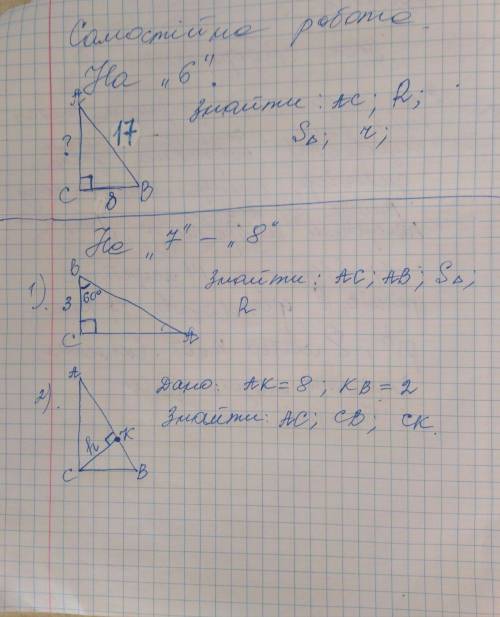 Самостійна робота.
На „6".
Знайти: AC; R;
S△; r;
A
?
17
C
8
B
На „7" – „8"
1)
B
3
60°
C
A
Знайти: AC; AB; S△;
R
2).
A
K
h
C
B
Дано: AK = 8; KB = 2
Знайти: AC; CB; CK.